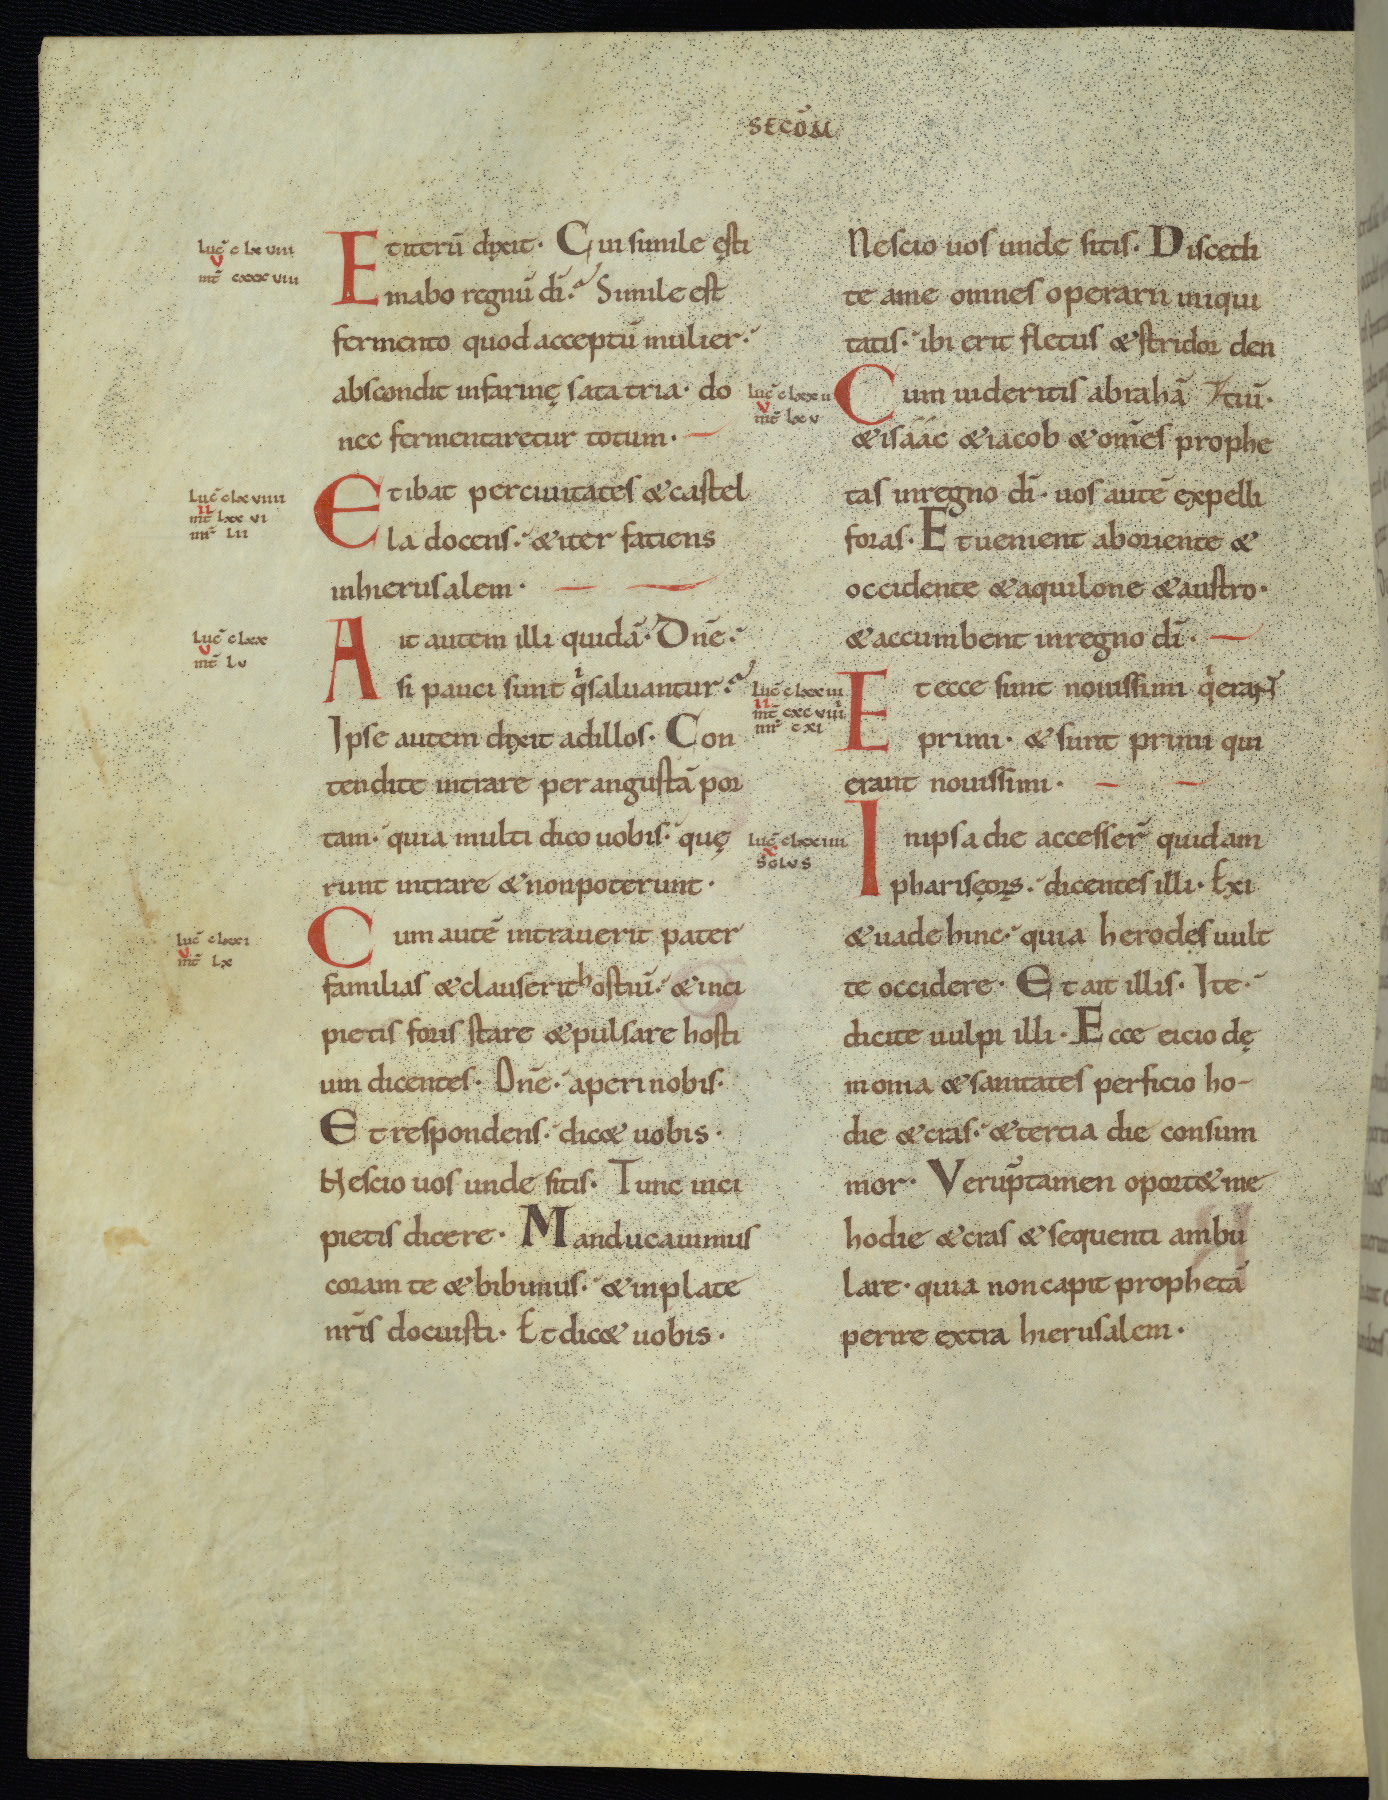 SECŌM
Luc̄ clxviii
v
mt̄ cxxxviii
Et iterū dixit· Cui simile ęsti
mabo regnū dī· Simile est
fermento quod acceptū mulier·
abscondit infarinę sata tria· do
nec fermentaretur totum·
Luc̄ clxviiii
ii
mt̄ lxxvi
mr̄ lii
Et ibat percivitates &castel
la docens· &iter fatiens
inhierusalem·
Luc̄ clxx
v
mt̄ lv
Ait autem illi quidā· Dn̄e·
si pauci sunt qͥsaluantur·
Ipse autem dixit adillos· Con
tendite intrare per angustā por
tam· quia multi dico uobis· quę
runt intrare &nonpoterunt·
Luc̄ clxxi
v
mt̄ lx
Cum autē intrauerit pater
familias &clauserit hostiū· &inci
pietis foris stare &pulsare hosti
um dicentes· Dn̄e· aperi nobis·
Et respondens· dic& uobis·
Nescio uos unde sitis· Tunc inci
pietis dicere· Manducauimus
coram te &bibimus· &inplate
nr̄is docuisti· Et dic& uobis·
Nescio uos unde sitis· Discedi
te a me omnes operarii iniqui
tatis· ibi erit fletus &stridor den
tiū·
Luc̄ clxxii
v
mt̄ lxv
Cum uideritis abrahā
&isáác &iacob &om̄es prophe
tas inregno dī· uos autē expelli
foras· Et uenient aboriente &
occidente &aquilone &austro·
&accumbent inregno dī·
Luc̄ clxxiii
ii
mt̄ cxcviiii
mr̄ cxi
Et ecce sunt nouissimi qͥerant
primi· &sunt primi qui
erant nouissimi·
Luc̄ clxxiiii
x
SOLVS
In ipsa die accesser̄ quidam
phariseorų· dicentes illi· Exi
&uade hinc· quia herodęs uult
te occidere· Et ait illis· Ite·
dicite uulpi illi· Ecce eicio dę
monia &sanitates perficio ho-
die &cras· &tertia die consum
mor· Verūptamen oport& me
hodie &cras &sequenti ambu
lare· quia non capit prophetā
perire extra hierusalem·